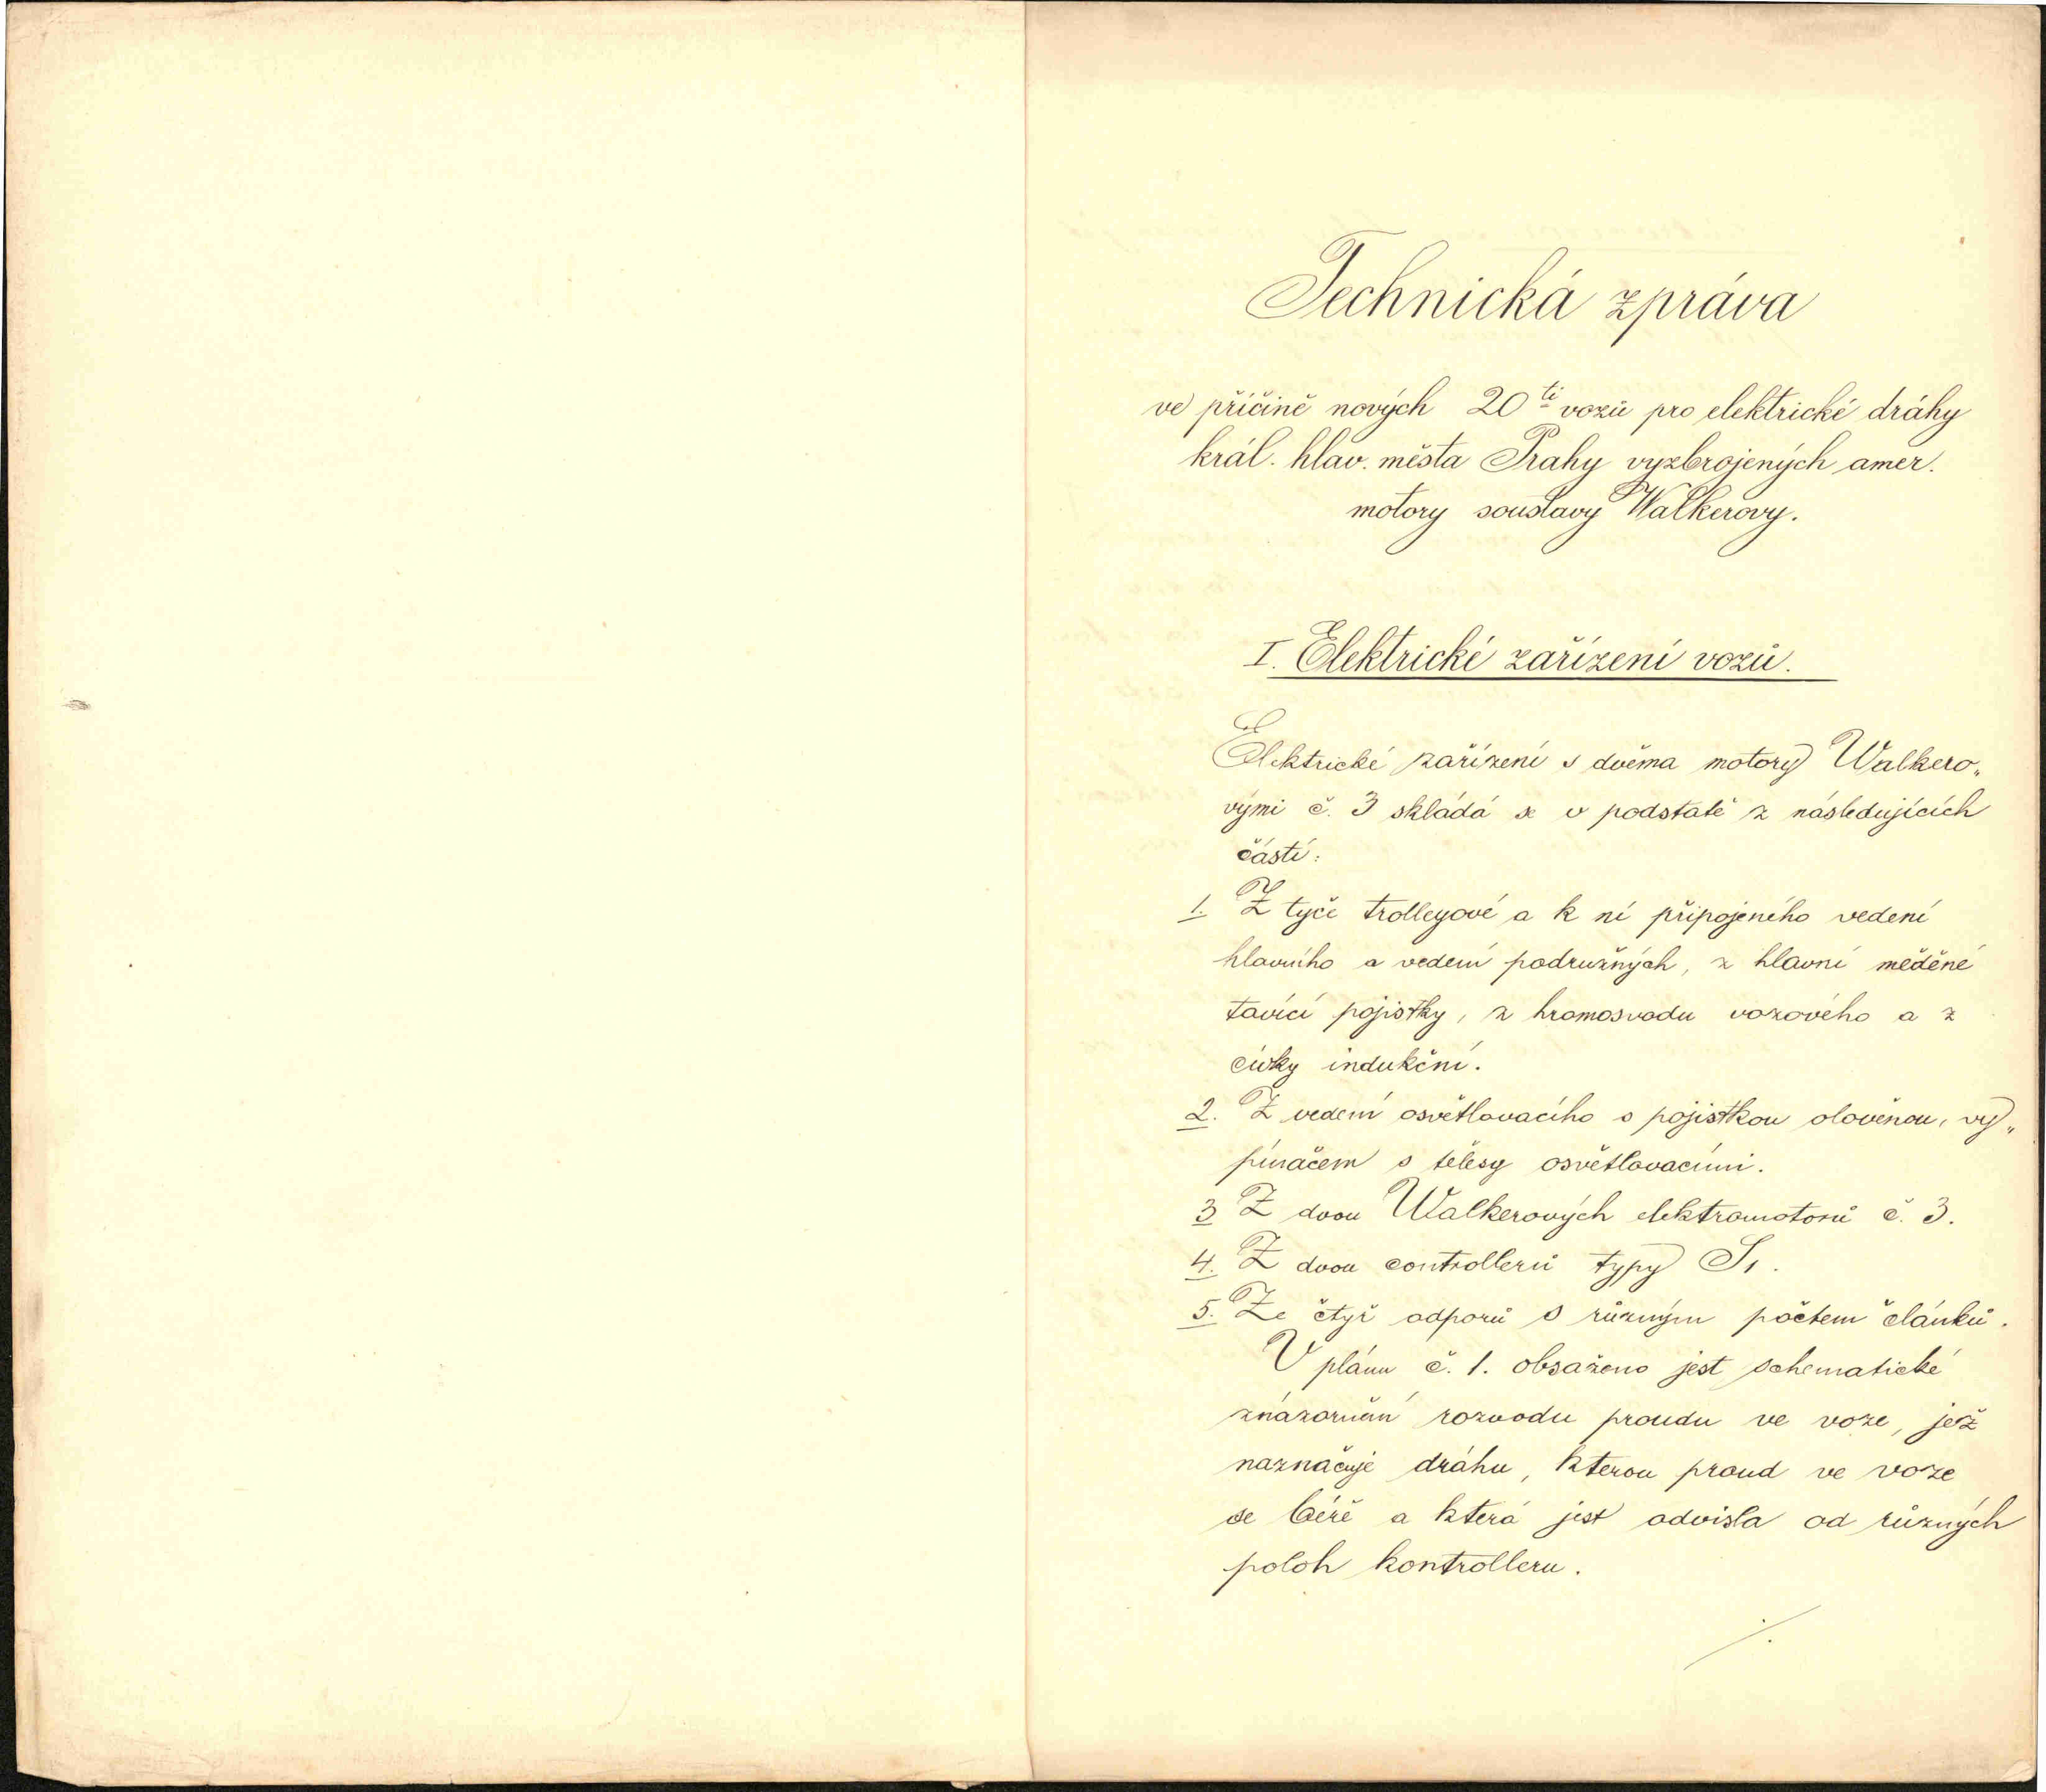 Technická zpráva
ve příčině nových 20ti vozů pro elektrické dráhy
král. hlav. města Prahy vyzbrojených amer.
motory soustavy Walkerovy.
I. Elektrické zařízení vozů.
Elektrické zařízení s dvěma motory Walkero„
vými č. 3 skládá se v podstatě z následujících
částí:
1. Z tyče trolleyové a k ní připojeného vedení
hlavního a vedení podružných, z hlavní měděné
tavící pojistky, z hromosvodu vozového a z
cívky indukční.
2. Z vedení osvětlovacího s pojistkou olověnou, vy„
pínačem s tělesy osvětlovacími.
3 Z dvou Walkerových elektromotorů č. 3.
4. Z dvou controllerů typy S1.
5. Ze čtyř odporů s různým počtem článků.
V plánu č. 1. obsaženo jest schematické
znázornění rozvodu proudu ve voze, jež
naznačuje dráhu, kterou proud ve voze
se béře a která jest odvislá od různých
poloh kontrolleru.
./.